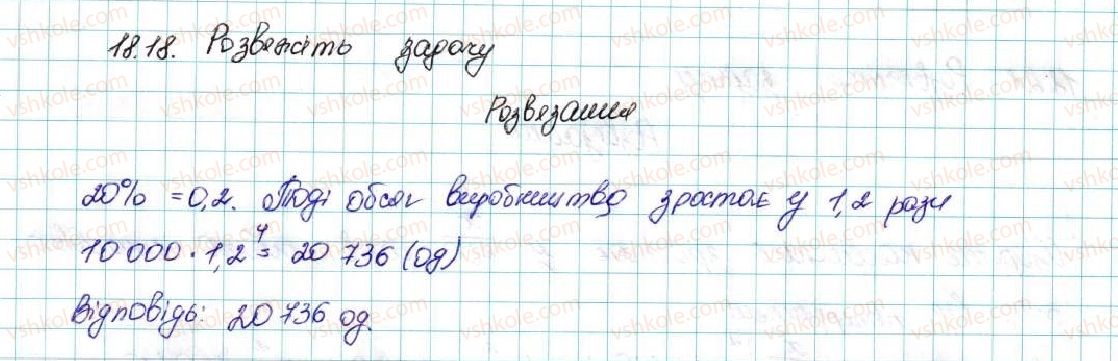 18.18. Розвяжіть задачу
Розвязання
20% = 0,2. Тоді обсяг виробництва зростає у 1,2 рази
10 000 · 1,2⁴ = 20 736 (од)
Відповідь: 20 736 од.